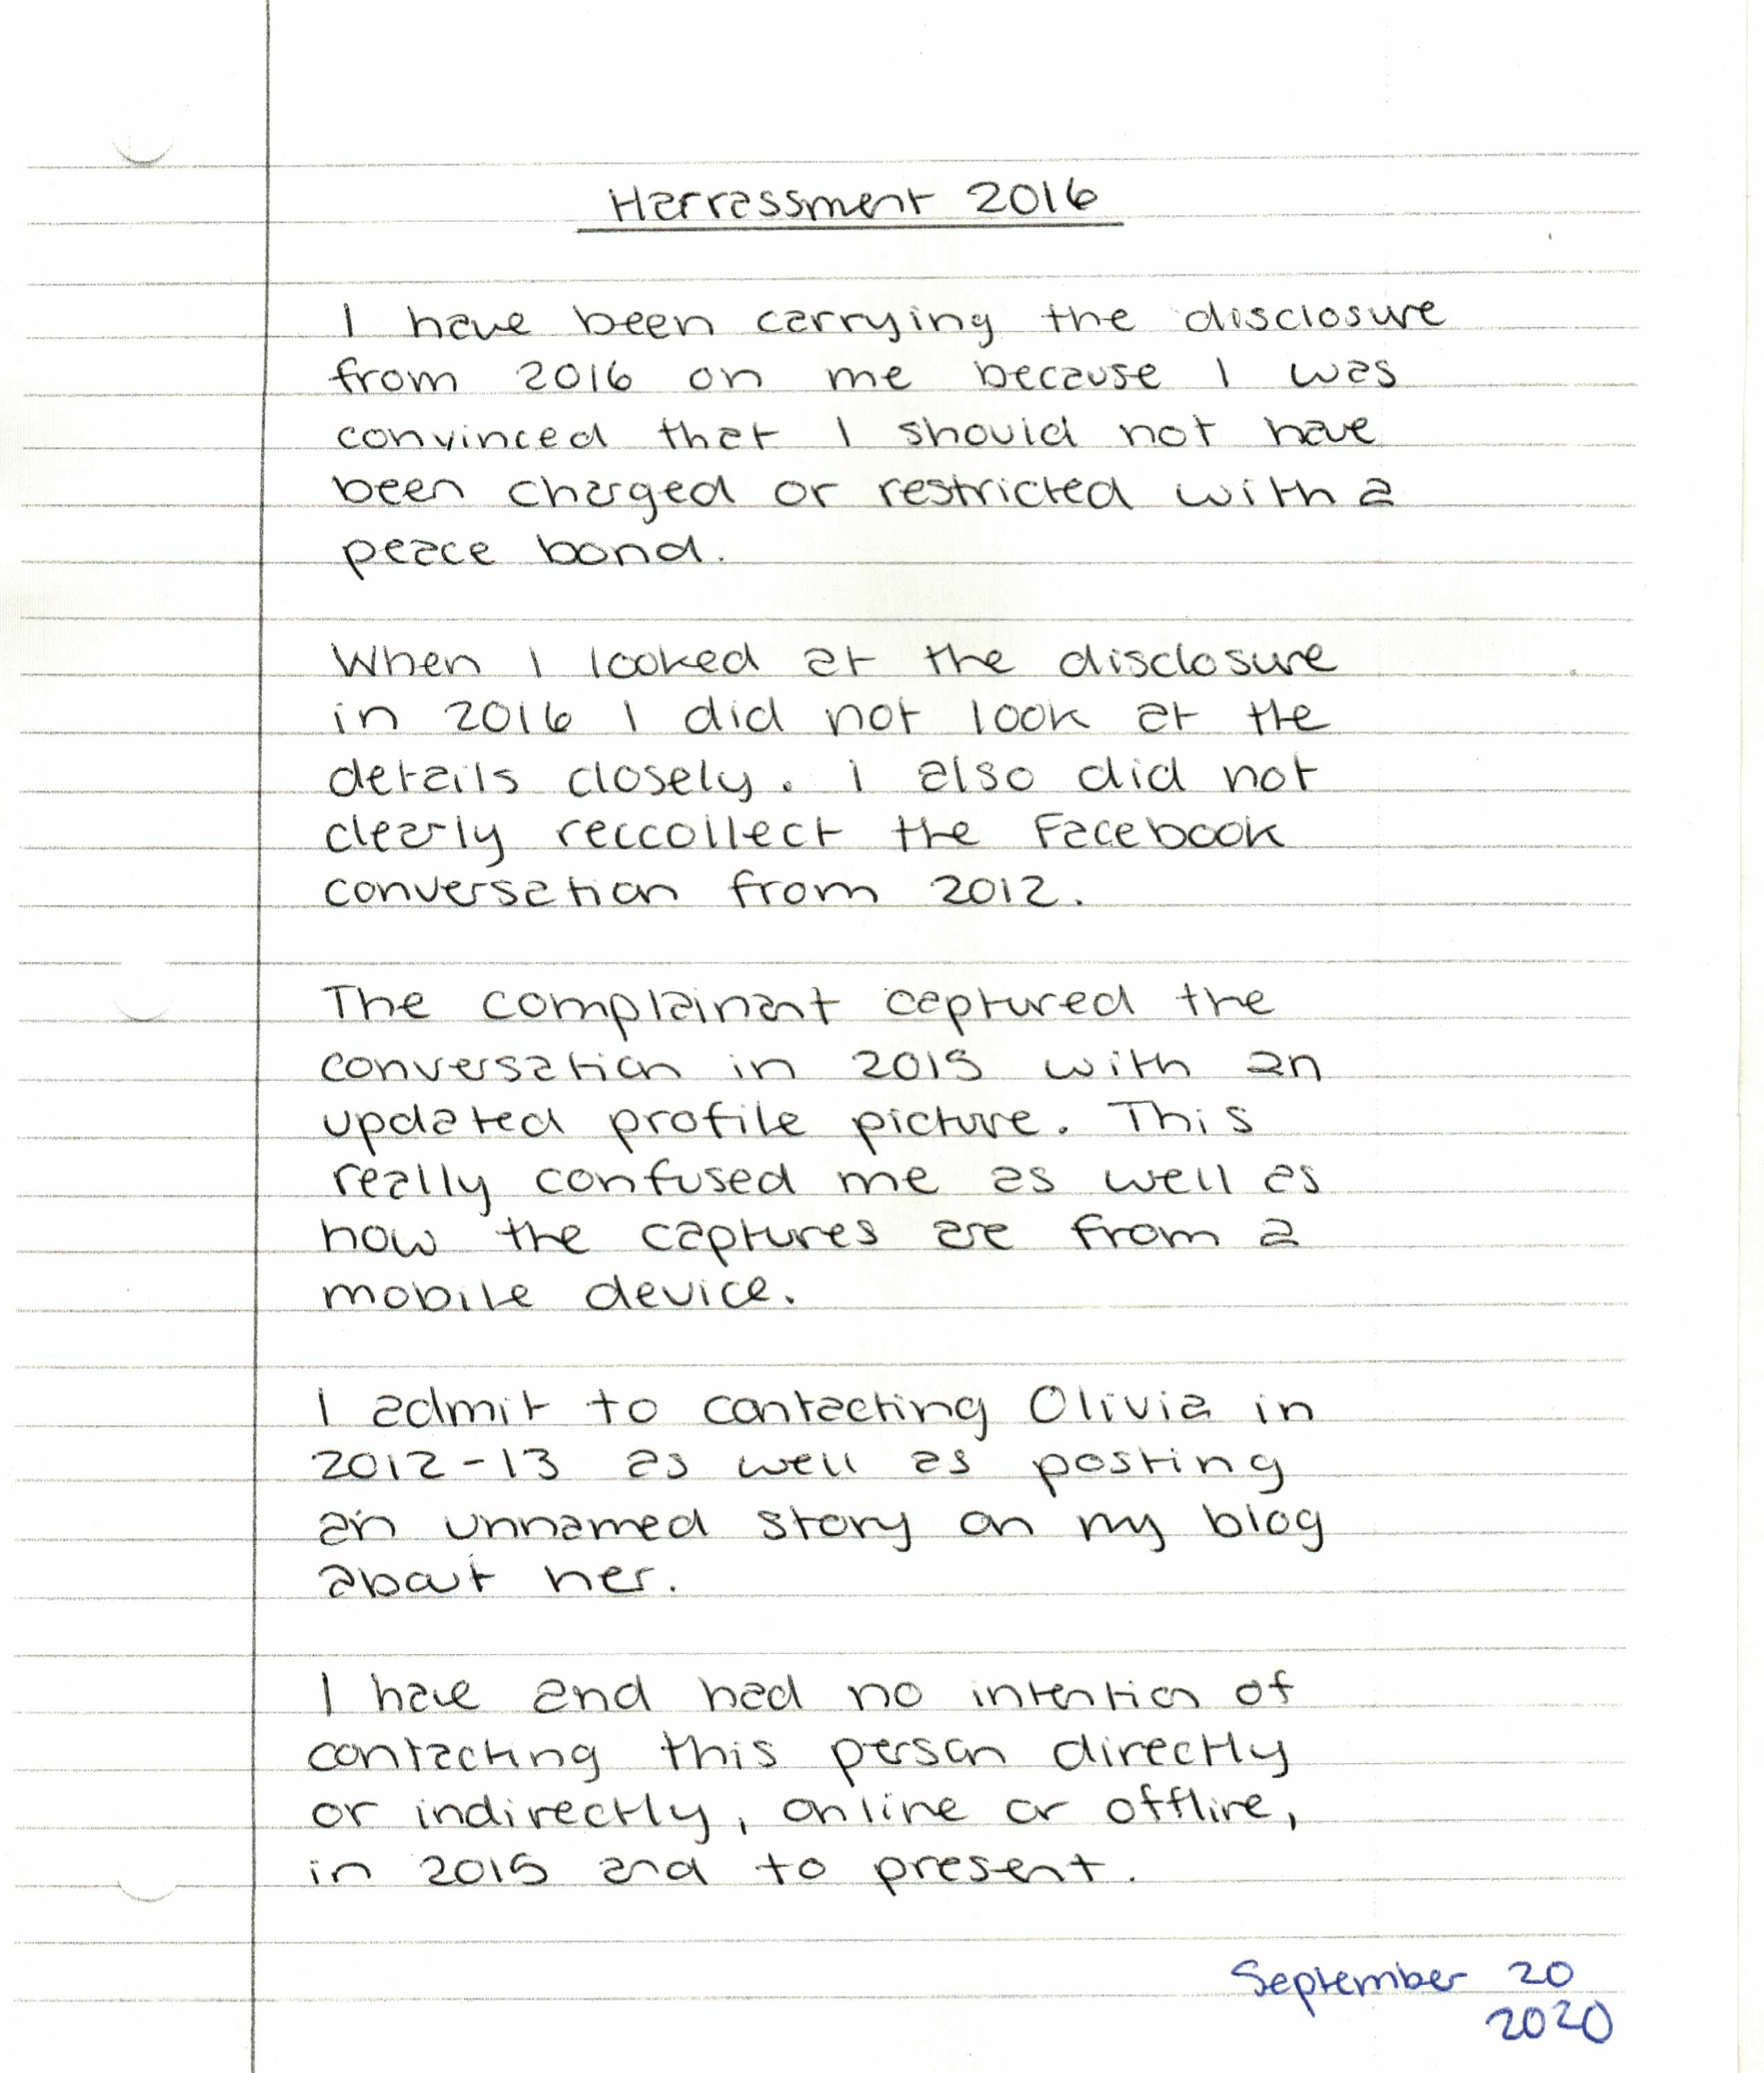 Harrassment 2016
I have been carrying the disclosure
from 2016 on me because I was
convinced that I should not have
been charged or restricted with a
peace bond.
When I looked at the disclosure
in 2016 I did not look at the
details closely. I also did not
clearly reccollect the Facebook
conversation from 2012.
The complainant captured the
conversation in 2015 with an
updated profile picture. This
really confused me as well as
how the captures are from a
mobile device.
I admit to contacting Olivia in
2012-13 as well as posting
an unnamed story on my blog
about her.
I have and had no intention of
contacting this person directly
or indirectly, online or offline,
in 2015 and to present.
September 20
2020